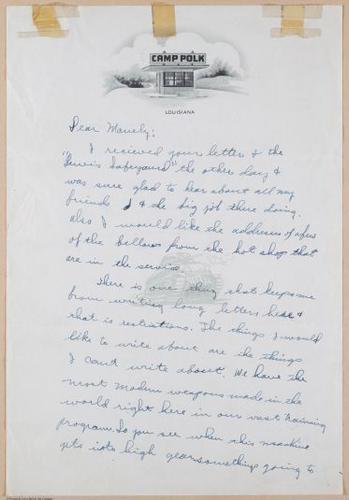 CAMP POLK
LOUISIANA
Dear Manely:
I recieved your letter & the
"Lewis Safeguard" the other day &
was sure glad to hear about all my
friends & the big job there doing.
also I would like the addresses of a few
of the fellows from the hot shop that
are in the service.
There is one thing that keeps me
from writing long letters here &
that is restrictions. The things I would
like to write about are the things
I cant write about. We have the
most modern weapons made in the
world right here in our vast training
program. So you see when this machine
gets into high gear something going to